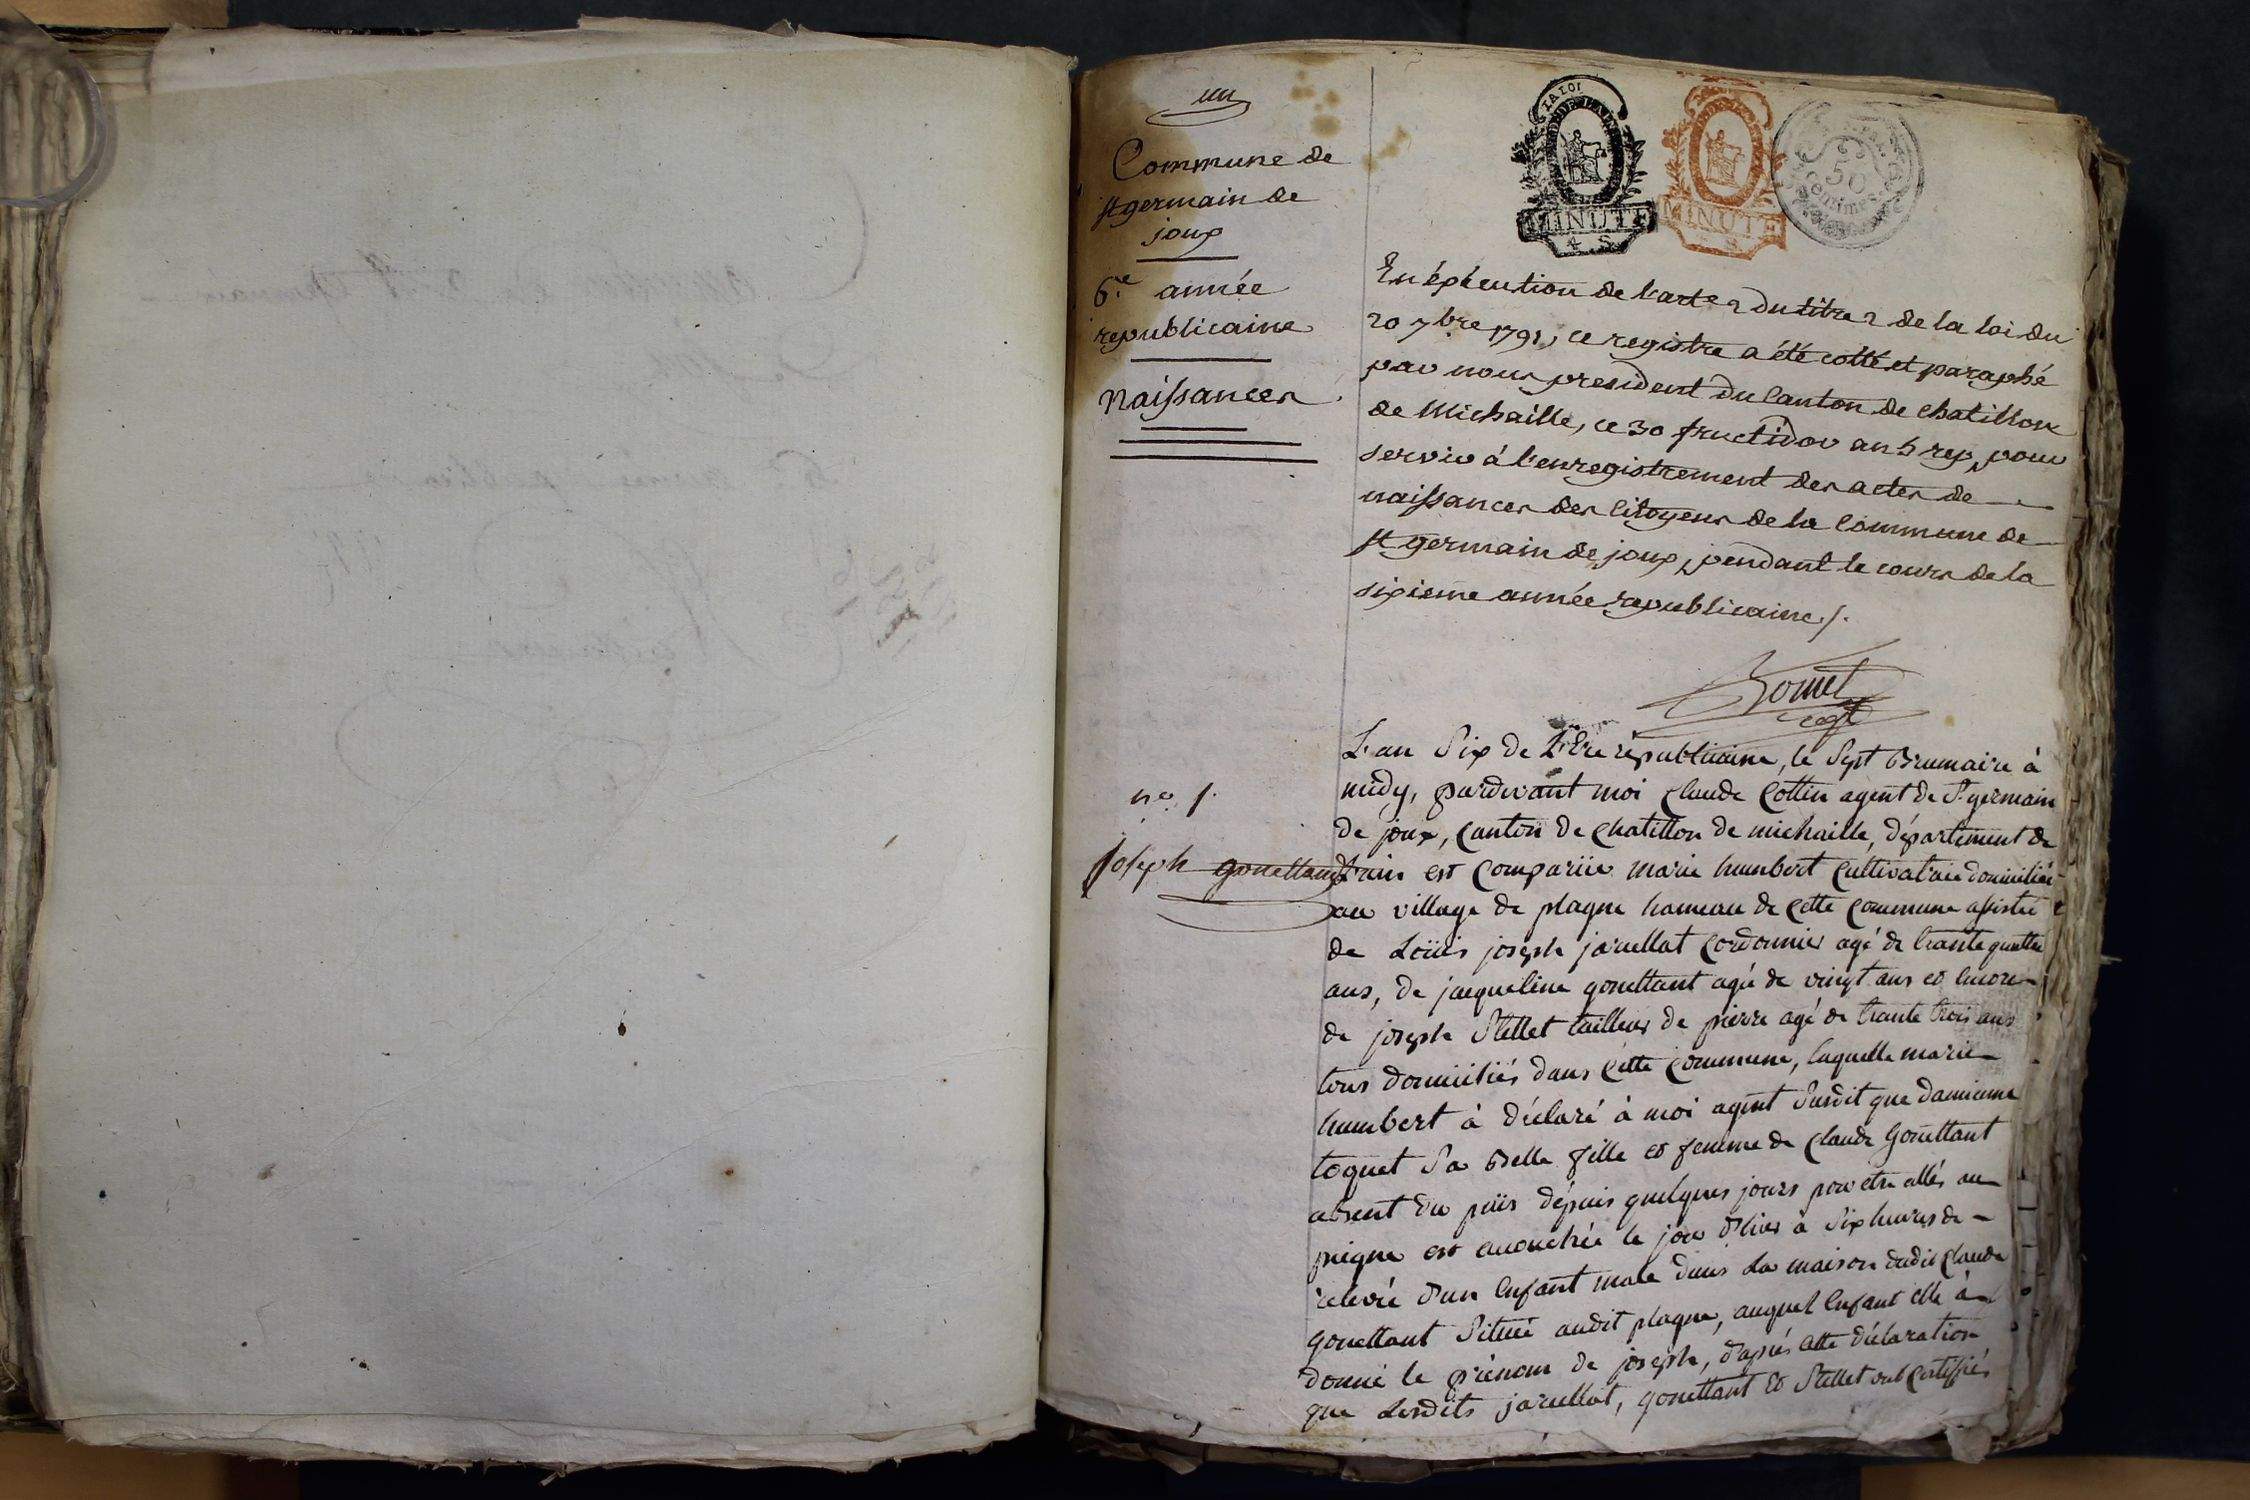 un
Commune de
st germain de
joux
6.e année
republicaine
Naissances
LA LOI
MINUTE
4 S
MINUTE
50
Centimes
En éxécution de l'art.e 2 du titre 2 de la loi du
20 7bre 1792, ce registre a été cotté et paraphé
par nous president du Canton de chatillon
de Michaille, ce 30 fructidor an 5 rep, pour
servir à l'enregistrement des actes de
naissances des Citoyens de la Commune de
st germain de joux, pendant le cours de la
sixieme année republicaine /.
L'an Six de L'Ere républicaine, le Sept Brumaire à
midy, pardevant moi Claude Cottin agent de St germain
de joux, Canton de Chatillon de michaille, département de
n.o 1.
Joseph gonettant
L'ain est Comparüe marie humbert Cultivatrice domiciliée
au village de plagne hameau de Cette Commune assistée
de Loüis joseph jacuellat Cordonnier agé de trante quattre
ans, de jacqueline gonettant agée de vingt ans et encore
de joseph Stellet tailleur de pierre agé de trante trois ans
tous domiciliés dans Cette Commune, laquelle marie
humbert à déclaré à moi agent Susdit que damienne
toquet Sa Belle fille et femme de Claude Gonettant
absent du païs dépuis quelques jours pour etre allés au
peigne est accouchée le jour d'hier à Six heures de
relevée d'un Enfant male dans La maison dudit Claude
gonettant Située audit plagne, auquel Enfant elle à
donné le prénom de joseph, d'après cette déclaration
que Lesdits jacuellat, gonettant et Stellet ont Certiffiés